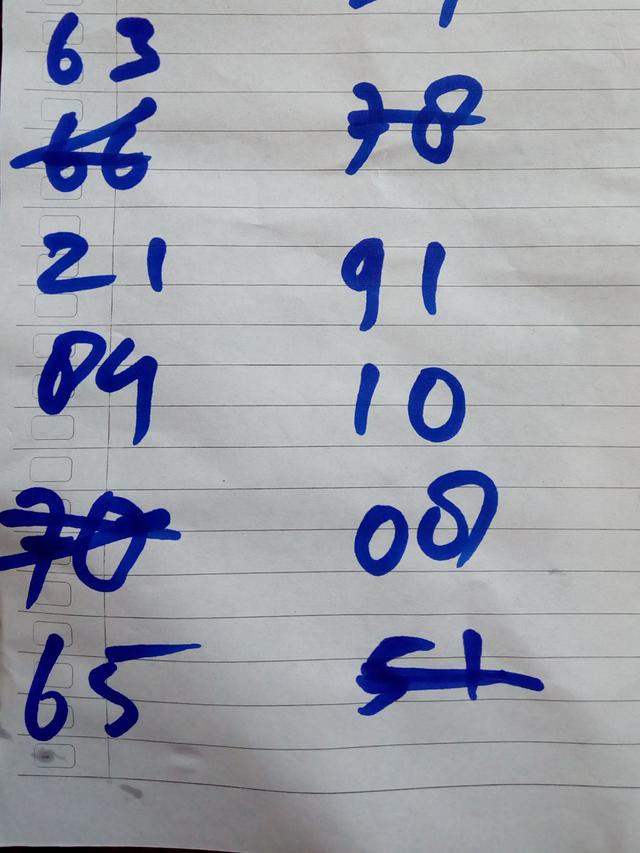 63
66 78
21 91
84 10
70 08
65 51